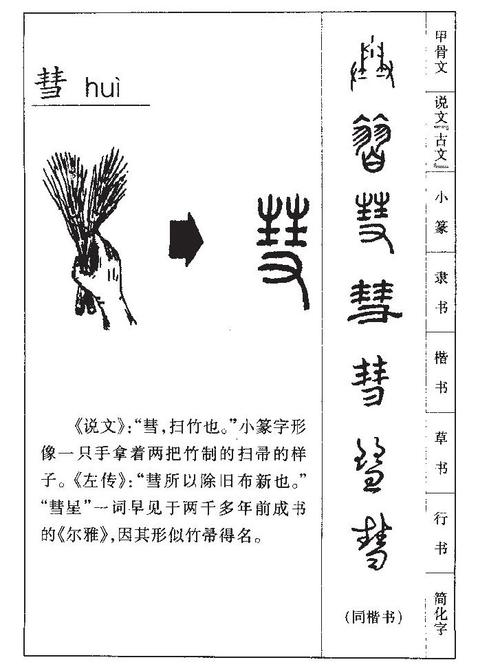 彗 huì
《说文》：“彗，扫竹也。”小篆字形
像一只手拿着两把竹制的扫帚的样
子。《左传》：“彗所以除旧布新也。”
“彗星”一词早见于两千多年前成书
的《尔雅》，因其形似竹帚得名。
彗
彗
彗
彗
彗
彗
彗
彗
（同楷书）
甲骨文
说文『古文』
小篆
隶书
楷书
草书
行书
简化字